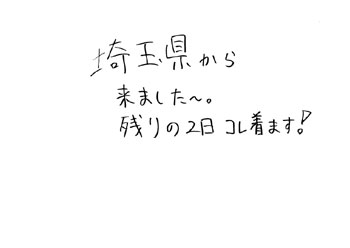 埼玉県から
来ました～。
残りの2日コレ着ます!